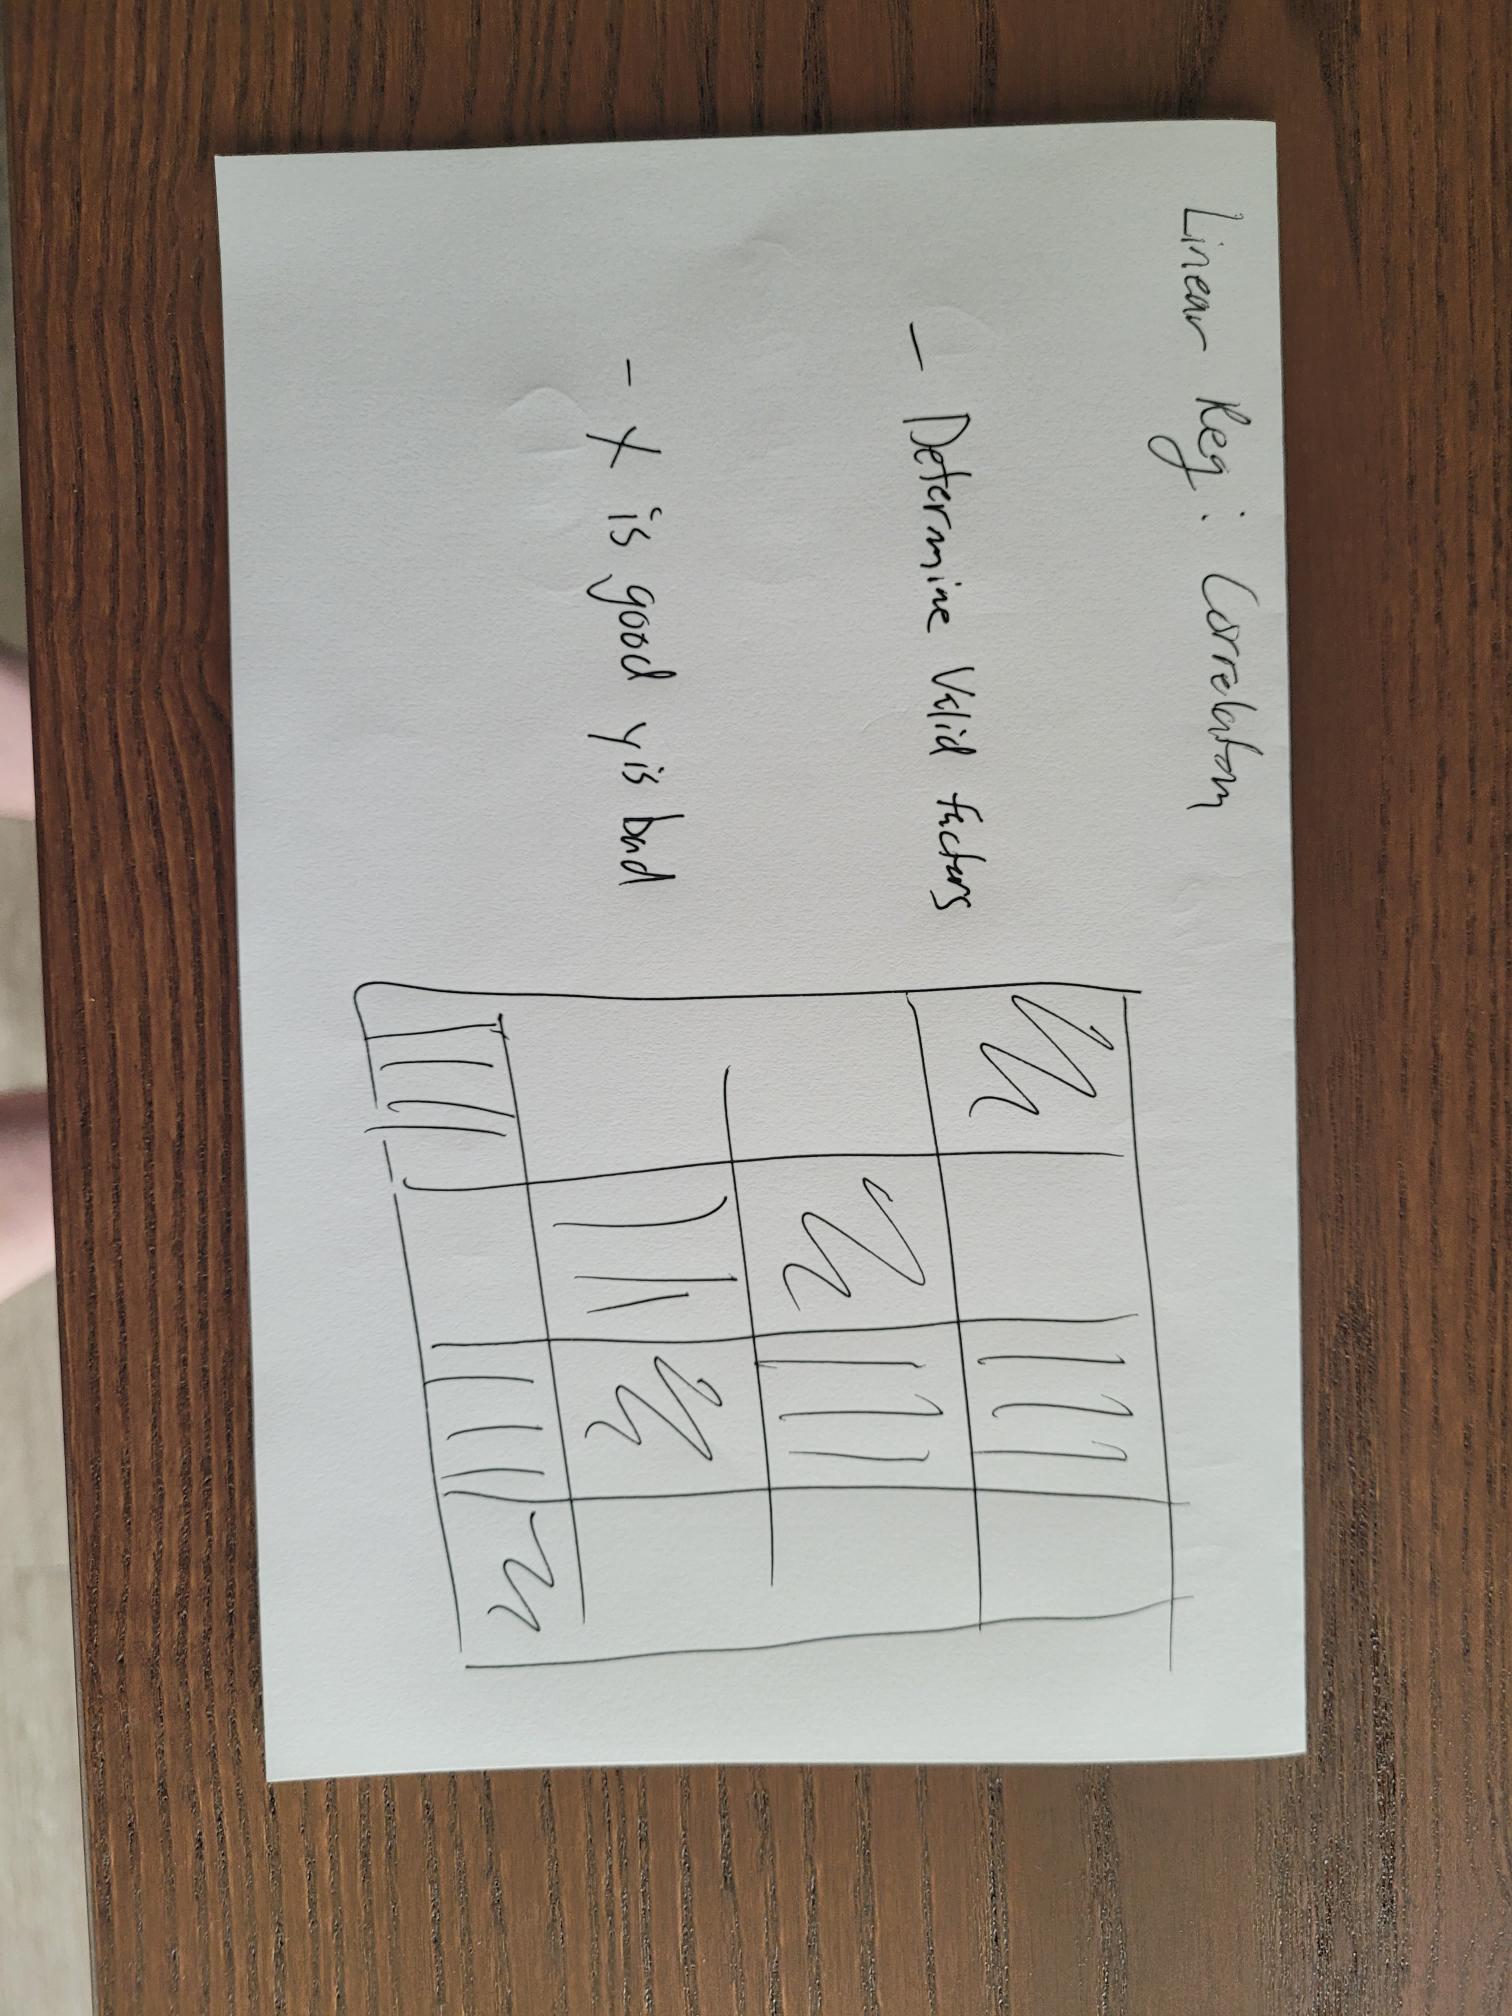 Linear Reg: Correlation
- Determine Valid factors
- X is good y is bad